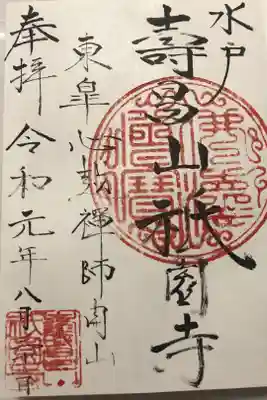 水戸
壽昌山祇園寺
東皐心越禅師開山
奉拝 令和元年八月